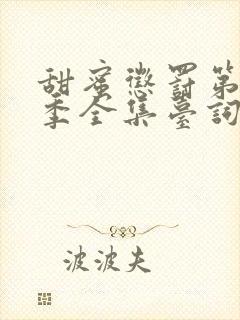 甜蜜懲罰第
季全集臺詞
波波夫